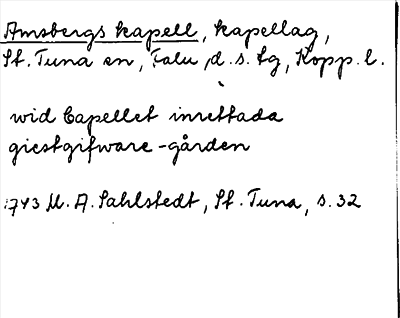 Amsbergs kapell, kapellag,
St. Tuna sn, Falu d. s. tg, Kopp. l.
wid Capellet inrettada
giestgifware-gården
1743 U. A. Sahlstedt, St. Tuna, s. 32